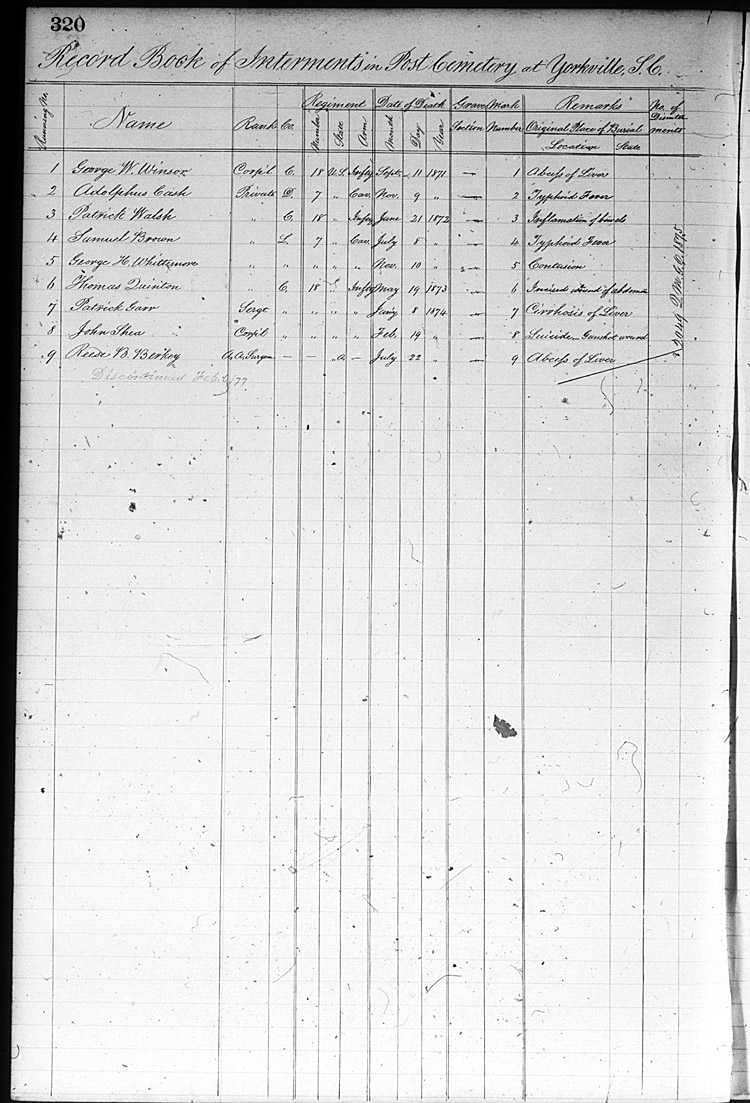 320
Record Book of Interments in Post Cemetery at Yorkville, S.C.
Running No. Name Rank Co. Regiment Date of Death Grave Mark Remarks No. of Disinterments
Number State Arm Month Day Year Section Number Original Place of Burial
Location State
1 George W. Winsor Corp'l C. 18 U.S. Inf'ty Sept. 11 1871 — 1 Abcess of Liver
2 Adolphus Cash Private D. 7 " Cav. Nov. 9 " — 2 Typhoid Fever
3 Patrick Walsh " C. 18 " Inf'ty June 21 1872 — 3 Inflamation of bowels
4 Samuel Brown " L. 7 " Cav. July 8 " — 4 Typhoid Fever
5 George H. Whittemore " " " " " Nov. 10 " " — 5 Contusion
6 Thomas Quinton " C. 18 " Inf'ty May 19 1873 — 6 Incised wound of abdomen
7 Patrick Garr Sergt " " " " Jan'y 8 1874 — 7 Cirrhosis of Liver
8 John Shea Corp'l " " " " Feb. 19 " — 8 Suicide — Gunshot wound
9 Reese B. Berkey A. A. Surgeon — — " A — July 22 " — 9 Abcess of Liver
Discontinued Feb. 1877
Q.M.G.O. 1875